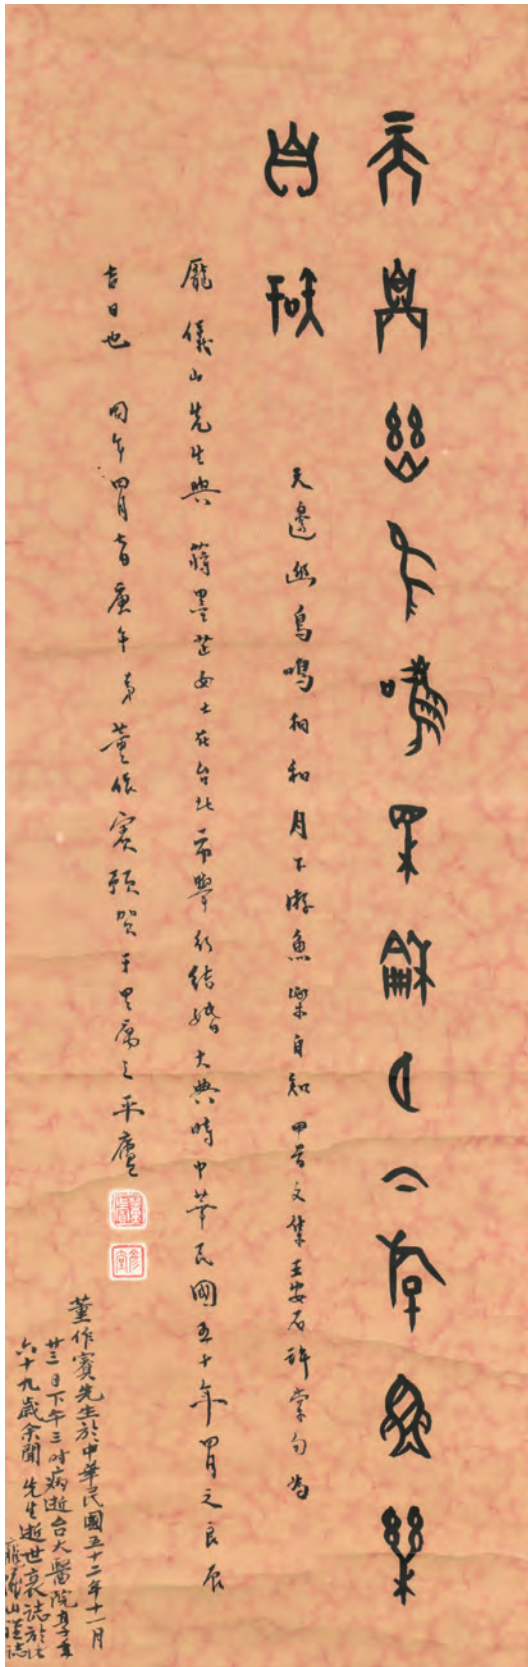 天邊幽鳥鳴相和月下游魚樂
自知
天邊幽鳥鳴相和月下游魚樂自知 甲骨文集王安石許棠句為
龐儀山先生與 蔣墨芷女士在台北市舉行結婚大典時中華民國五十年四月之良辰
吉日也 同年四月 庚午 弟董作賓預賀于 之平廬
彥堂
董作賓先生於中華民國五十二年十一月
廿三日下午三時病逝台大醫院享年
六十九歲余聞 先生逝世哀誌於此
龐儀山謹誌